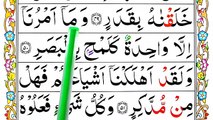 خَلَقْنٰهُ بِقَدَرٍ ۝٤٩ وَمَاۤ اَمْرُنَاۤ
اِلَّا وَاحِدَةٌ كَلَمْحٍۭ بِالْبَصَرِ ۝٥٠
وَلَقَدْ اَهْلَكْنَاۤ اَشْيَاعَكُمْ فَهَلْ
مِنْ مُّدَّكِرٍ ۝٥١ وَكُلُّ شَيْءٍ فَعَلُوْهُ